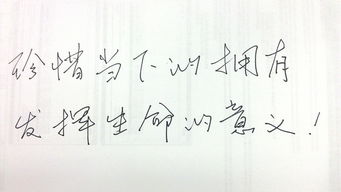 珍惜当下的拥有
发挥生命的意义！